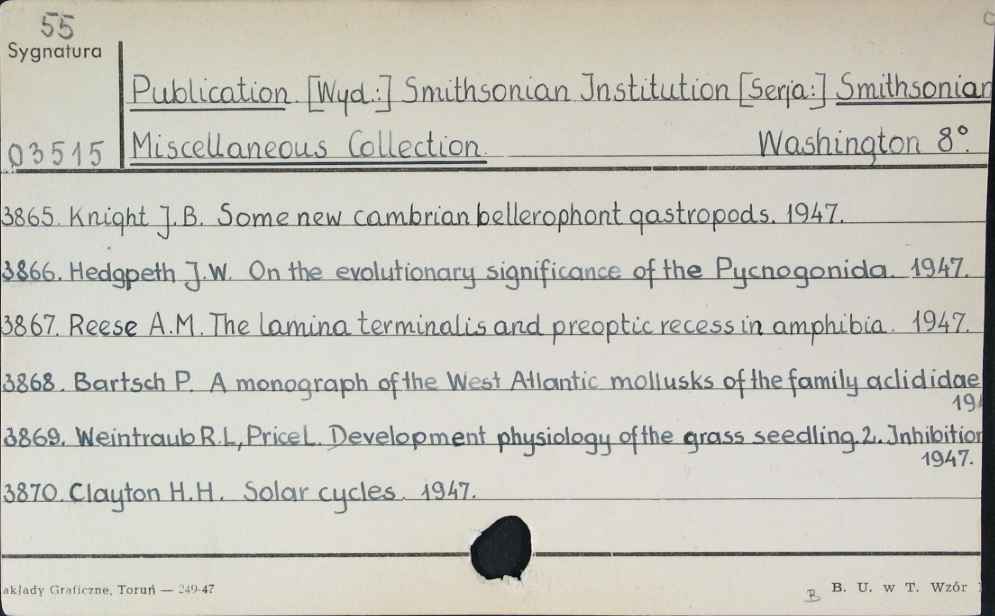 55
Sygnatura
Publication [Wyd.:] Smithsonian Institution [Serja:] Smithsonian
03515 Miscellaneous Collection. Washington 8°.
3865. Knight J.B. Some new cambrian bellerophont gastropods. 1947.
3866. Hedgpeth J.W. On the evolutionary significance of the Pycnogonida. 1947.
3867. Reese A.M. The lamina terminalis and preoptic recess in amphibia. 1947.
3868. Bartsch P. A monograph of the West Atlantic mollusks of the family aclididae
194
3869. Weintraub R.L, Price L. Development physiology of the grass seedling. 2. Inhibition
1947.
3870. Clayton H.H. Solar cycles. 1947.
akłady Graficzne, Toruń — 249-47
B B. U. w T. Wzór